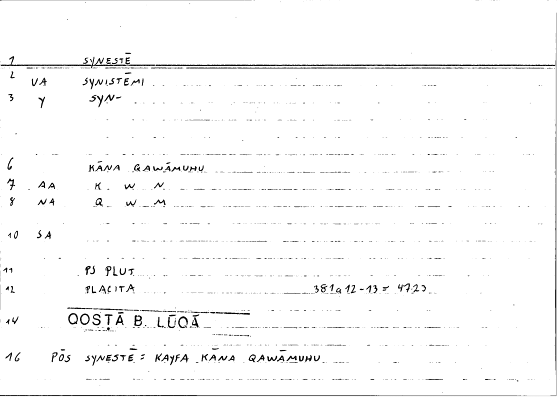 1 SYNESTĒ
2 VA SYNISTĒMI
3 Y SYN-
6 KĀNA QAWĀMUHU
7 AA K W N
8 NA Q W M
10 SA
11 PS PLUT
12 PLACITA 381a12-13 = 4723
14 QOSṬĀ B. LŪQĀ
16 PŌS SYNESTĒ = KAYFA KĀNA QAWĀMUHU